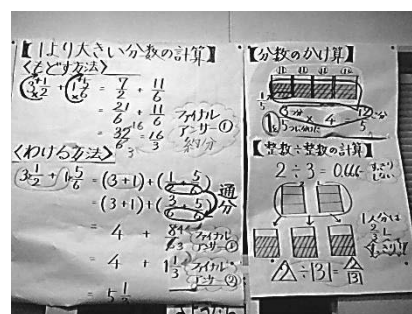 【1より大きい分数の計算】
〈もどす方法〉
3 1/2 + 1 5/6 = 7/2 + 11/6
= 21/6 + 11/6
= 32/6 = 16/3
ファイナルアンサー①
約分
〈わける方法〉
3 1/2 + 1 5/6 = (3+1)+(1/2+5/6)
= (3+1)+(3/6+5/6)
通分
= 4 + 8/6 4/3
ファイナルアンサー①
= 4 + 1 1/3
ファイナルアンサー②
= 5 1/3
【分数のかけ算】
3/5 × 4 = 12/5
【整数÷整数の計算】
2÷3=0.666
すっきりしない
1人分は
2/3 L
すっきり!!
△÷□=△/□